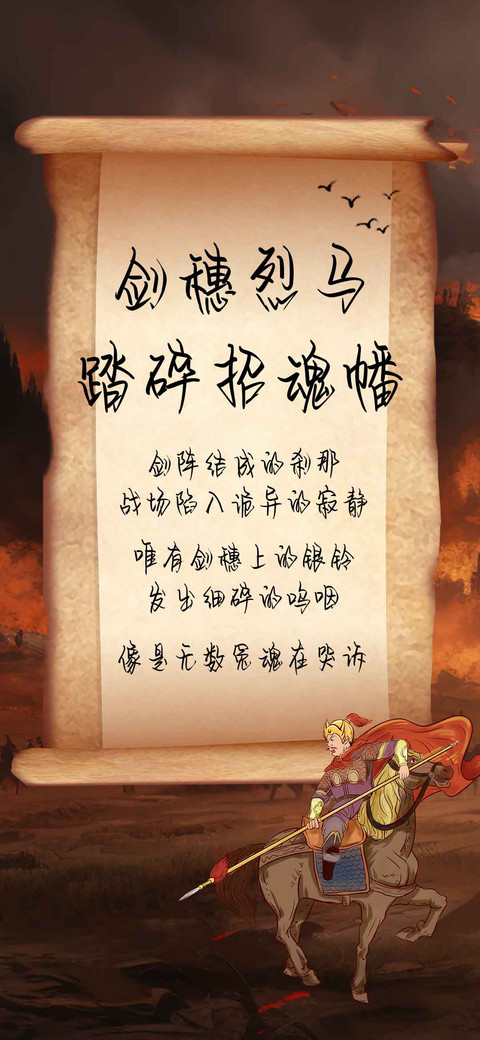 剑穗烈马
踏碎招魂幡
剑阵结成的刹那
战场陷入诡异的寂静
唯有剑穗上的银铃
发出细碎的呜咽
像是无数冤魂在哭诉